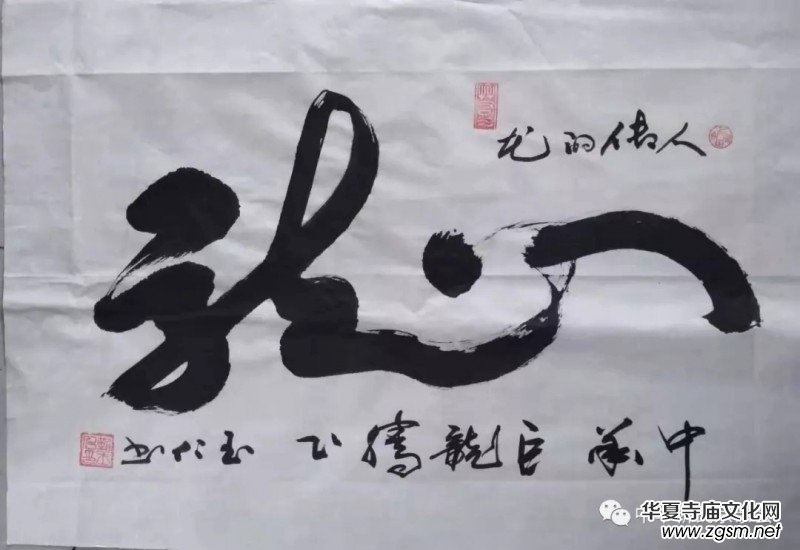 龙的傳人
龍
中華巨龍騰飞 玉仁书
华夏寺庙文化网
www.zgsm.net